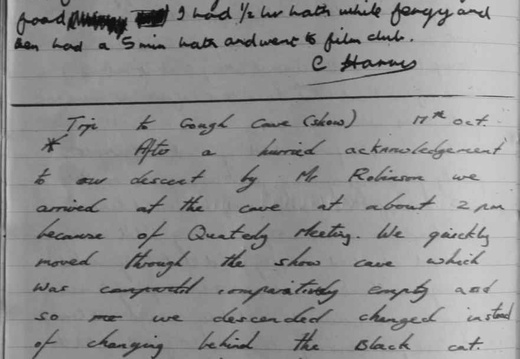 food I had ½ hr bath while fengy and
Ben had a 5 min bath and went to film club.
C Harris
Trip to Gough Cave (show) 17th Oct.
* After a hurried acknowledgement
to our descent by Mr Robinson we
arrived at the cave at about 2 pm
because of Quately Meeting. We quickly
moved through the show cave which
was comparitively empty and
so we descended changed instead
of changing behind the Black cat.